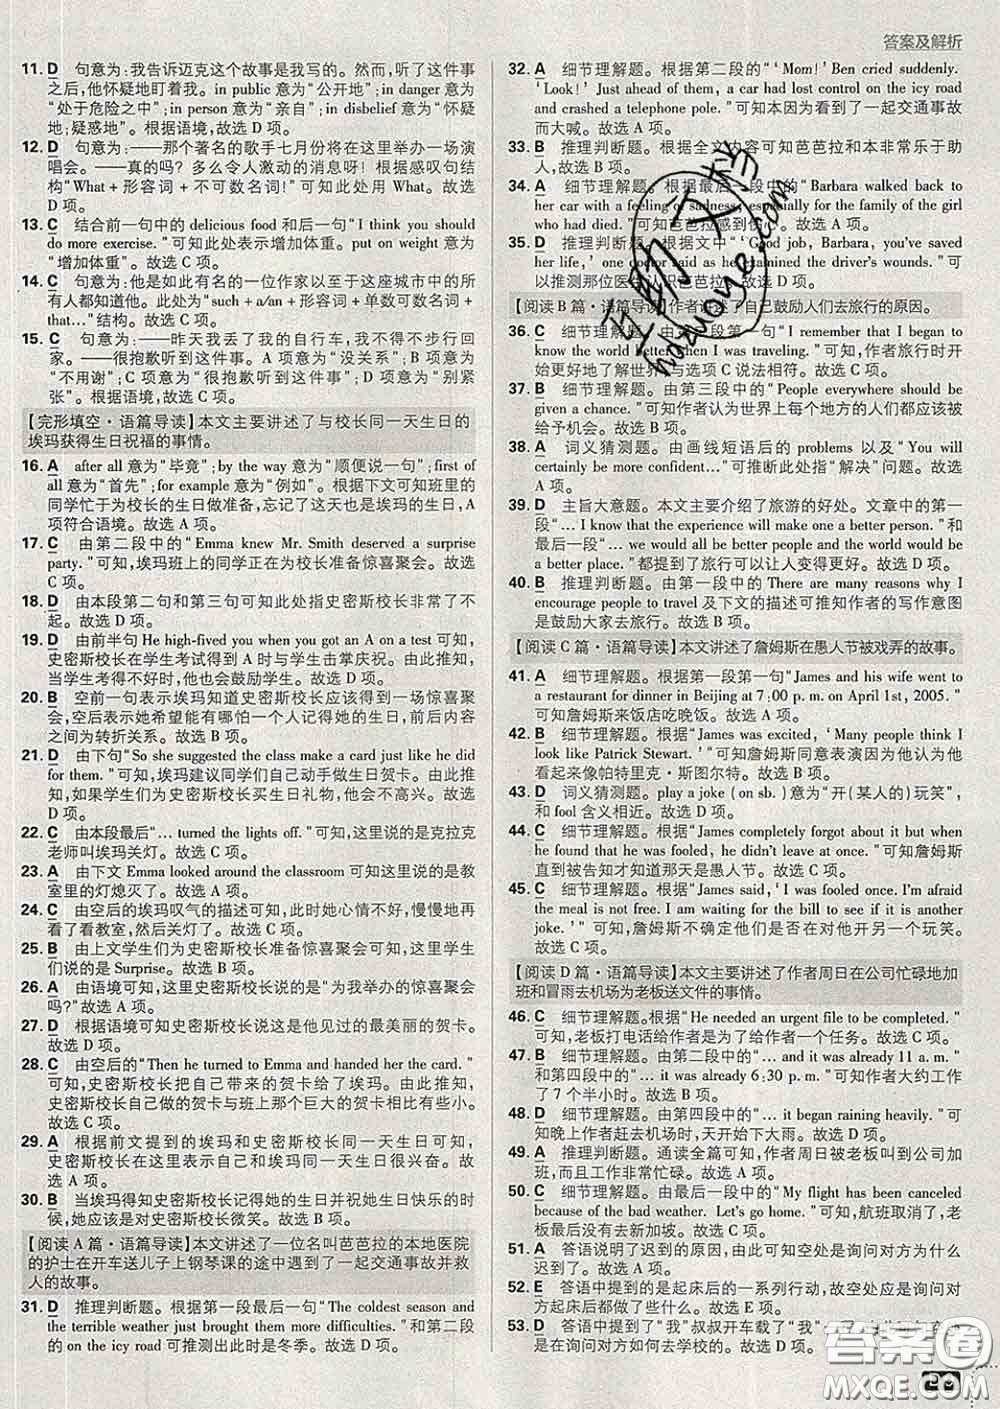 答案及解析
11. D 句意为:我告诉迈克这个故事是我写的。然而,听了这件事
之后,他怀疑地盯着我。in public 意为“公开地”;in danger 意为
“处于危险之中”;in person 意为“亲自”;in disbelief 意为“怀疑
地;疑惑地”。根据语境,故选 D 项。
12. D 句意为:——那个著名的歌手七月份将在这里举办一场演
唱会。——真的吗? 多么令人激动的消息呀! 根据感叹句结
构“What + 形容词 + 不可数名词!”可知此处用 What。故选
D 项。
13. C 结合前一句中的 delicious food 和后一句“I think you should
do more exercise.”可知此处表示增加体重。put on weight 意为
“增加体重”。故选 C 项。
14. C 句意为:他是如此有名的一位作家以至于这座城市中的所
有人都知道他。此处为“such + a/an + 形容词 + 单数可数名词 +
that…”结构。故选 C 项。
15. C 句意为:——昨天我丢了我的自行车,我不得不步行回
家。——很抱歉听到这件事。A 项意为“没关系”;B 项意为
“不用谢”;C 项意为“很抱歉听到这件事”;D 项意为“别紧
张”。根据语境,故选 C 项。
【完形填空·语篇导读】本文主要讲述了与校长同一天生日的
埃玛获得生日祝福的事情。
16. A after all 意为“毕竟”;by the way 意为“顺便说一句”;first of
all 意为“首先”;for example 意为“例如”。根据下文可知班里的
同学忙于为校长的生日做准备,忘记了这天也是埃玛的生日,A
项符合语境。故选 A 项。
17. C 由第二段中的“Emma knew Mr. Smith deserved a surprise
party.”可知,埃玛班上的同学正在为校长准备惊喜聚会。故选
C 项。
18. D 由本段第二句和第三句可知此处指史密斯校长非常了不
起。故选 D 项。
19. D 由前半句 He high-fived you when you got an A on a test 可知,
史密斯校长在学生考试得到 A 时与学生击掌庆祝。由此推知,
当学生考得不好时,他也会鼓励学生。故选 D 项。
20. B 空前一句表示埃玛知道史密斯校长应该得到一场惊喜聚
会,空后表示她希望能有哪怕一个人记得她的生日,前后内容
之间为转折关系。故选 B 项。
21. D 由下句“So she suggested the class make a card just like he did
for them.”可知,埃玛建议同学们自己动手做生日贺卡。由此推
知,如果学生们为史密斯校长买生日礼物,他会不高兴。故选
D 项。
22. C 由本段最后“… turned the lights off.”可知,这里说的是克拉克
老师叫埃玛关灯。故选 C 项。
23. A 由下文 Emma looked around the classroom 可知这里说的是教
室里的灯熄灭了。故选 A 项。
24. C 由空后的埃玛叹气的描述可知,此时她心情不好,慢慢地再
看了看教室,然后关灯了。故选 C 项。
25. B 由上文学生们为史密斯校长准备惊喜聚会可知,这里的学
生们说的是 Surprise。故选 B 项。
26. A 由语境可知,这里说的是史密斯校长说“为我举办的惊喜
聚会?”故选 A 项。
27. D 根据语境可知史密斯校长说这是他见过的最美丽的贺卡。
故选 D 项。
28. C 由空后的“Then he turned to Emma and handed her the card.”
可知,史密斯校长把自己带来的贺卡给了埃玛。由此推知,史
密斯校长自己做的贺卡与班上那个巨大的贺卡相比有些小。
故选 C 项。
29. A 根据前文提到的埃玛和史密斯校长同一天生日可知,
史密斯校长在此处表示自己和埃玛同一天生日很兴奋。故
选 A 项。
30. B 当埃玛得知史密斯校长记得她的生日并祝她生日快乐的时
候,她应该是对史密斯校长微笑。故选 B 项。
【阅读 A 篇·语篇导读】本文讲述了一位名叫芭芭拉的本地医院
的护士在开车送儿子上钢琴课的途中遇到了一起交通事故并救
人的故事。
31. D 推理判断题。根据第一段最后一句“The coldest season and
the terrible weather just brought them more difficulties.”和第二段
的 on the icy road 可推测出此时是冬季。故选 D 项。
32. A 细节理解题。根据第二段的“‘Mom!’Ben cried suddenly.
‘Look!’Just ahead of them, a car had lost control on the icy road
and crashed a telephone pole.”可知本因为看到了一起交通事故
而大喊。故选 A 项。
33. B 推理判断题。根据全文内容可知芭芭拉和本非常乐于助
人。故选 B 项。
34. A 细节理解题。根据最后一段中的“Barbara walked back to
her car with a feeling of sadness, especially for the family of the girl
who had died.”可知芭芭拉感到伤心。故选 A 项。
35. D 推理判断题。根据文中“‘Good job, Barbara, you've saved
her life,’one doctor said as he examined the driver's wounds.”可
以推测那位医生认识芭芭拉。故选 D 项。
【阅读 B 篇·语篇导读】作者讲述了自己鼓励人们去旅行的原因。
36. C 细节理解题。由第二段第一句“I remember that I began to
know the world better when I was traveling.”可知,作者旅行时开
始更好地了解世界,与选项 C 说法相符。故选 C 项。
37. B 细节理解题。由第三段中的“People everywhere should be
given a chance.”可知作者认为世界上每个地方的人们都应该被
给予机会。故选 B 项。
38. A 词义猜测题。由画线短语后的 problems 以及“You will
certainly be more confident…”可推断此处指“解决”问题。故选
A 项。
39. D 主旨大意题。本文主要介绍了旅游的好处。文章中的第一
段“… I know that the experience will make one a better person.”和
最后一段“… we would all be better people and the world would be
a better place.”都提到了旅行可以让人变得更好。故选 D 项。
40. B 推理判断题。由第一段中的 There are many reasons why I
encourage people to travel 及下文的描述可推知作者的写作意图
是鼓励大家去旅行。故选 B 项。
【阅读 C 篇·语篇导读】本文讲述了詹姆斯在愚人节被戏弄的故事。
41. A 细节理解题。根据第一段第一句“James and his wife went to
a restaurant for dinner in Beijing at 7:00 p. m. on April 1st, 2005.”
可知詹姆斯来饭店吃晚饭。故选 A 项。
42. B 细节理解题。根据“James was excited,‘Many people think I
look like Patrick Stewart.’”可知詹姆斯同意表演因为他认为他
看起来像帕特里克·斯图尔特。故选 B 项。
43. D 词义猜测题。play a joke (on sb.)意为“开(某人的)玩笑”,
和 fool 含义相近。故选 D 项。
44. C 细节理解题。根据“James completely forgot about it and when
he found that he was fooled, he didn't leave at once.”可知詹姆斯
直到被告知才知道那天是愚人节。故选 C 项。
45. C 细节理解题。根据“James said,‘I was fooled once. I'm afraid
the meal is not free. I am waiting for the bill to see if it is another
joke.’”可知,詹姆斯不确定他们是否在对他开另一个玩笑。
故选 C 项。
【阅读 D 篇·语篇导读】本文主要讲述了作者周日在公司忙碌地加
班和冒雨去机场为老板送文件的事情。
46. C 细节理解题。根据“He needed an urgent file to be completed.”
可知,老板打电话给作者是为了给作者一个任务。故选 C 项。
47. B 细节理解题。由第二段中的“… and it was already 11 a. m.”
和第四段中的“… it was already 6:30 p. m.”可知作者大约工作
了 7 个半小时。故选 B 项。
48. D 细节理解题。由第四段中的“… it began raining heavily.”可
知晚上作者赶去机场时,天开始下大雨。故选 D 项。
49. A 推理判断题。通读全篇可知,作者周日被叫到公司加
班,而且工作非常忙碌。故选 A 项。
50. C 细节理解题。由最后一段中的“My flight has been canceled
because of the bad weather. Let's go home.”可知,航班取消了,老
板最后没有去新加坡。故选 C 项。
51. A 答语说明了迟到的原因,由此可知空处应是询问对方为什么
迟到了。故选 A 项。
52. E 答语中提到的是起床后的一系列行动,故空处应是询问对
方起床后都做了些什么。故选 E 项。
53. D 答语中提到了“我”叔叔开车载了“我”
是在询问对方如何去学校的。故选 D 项。
互助文档
hdzuoye.com
答案圈
MXQE.COM